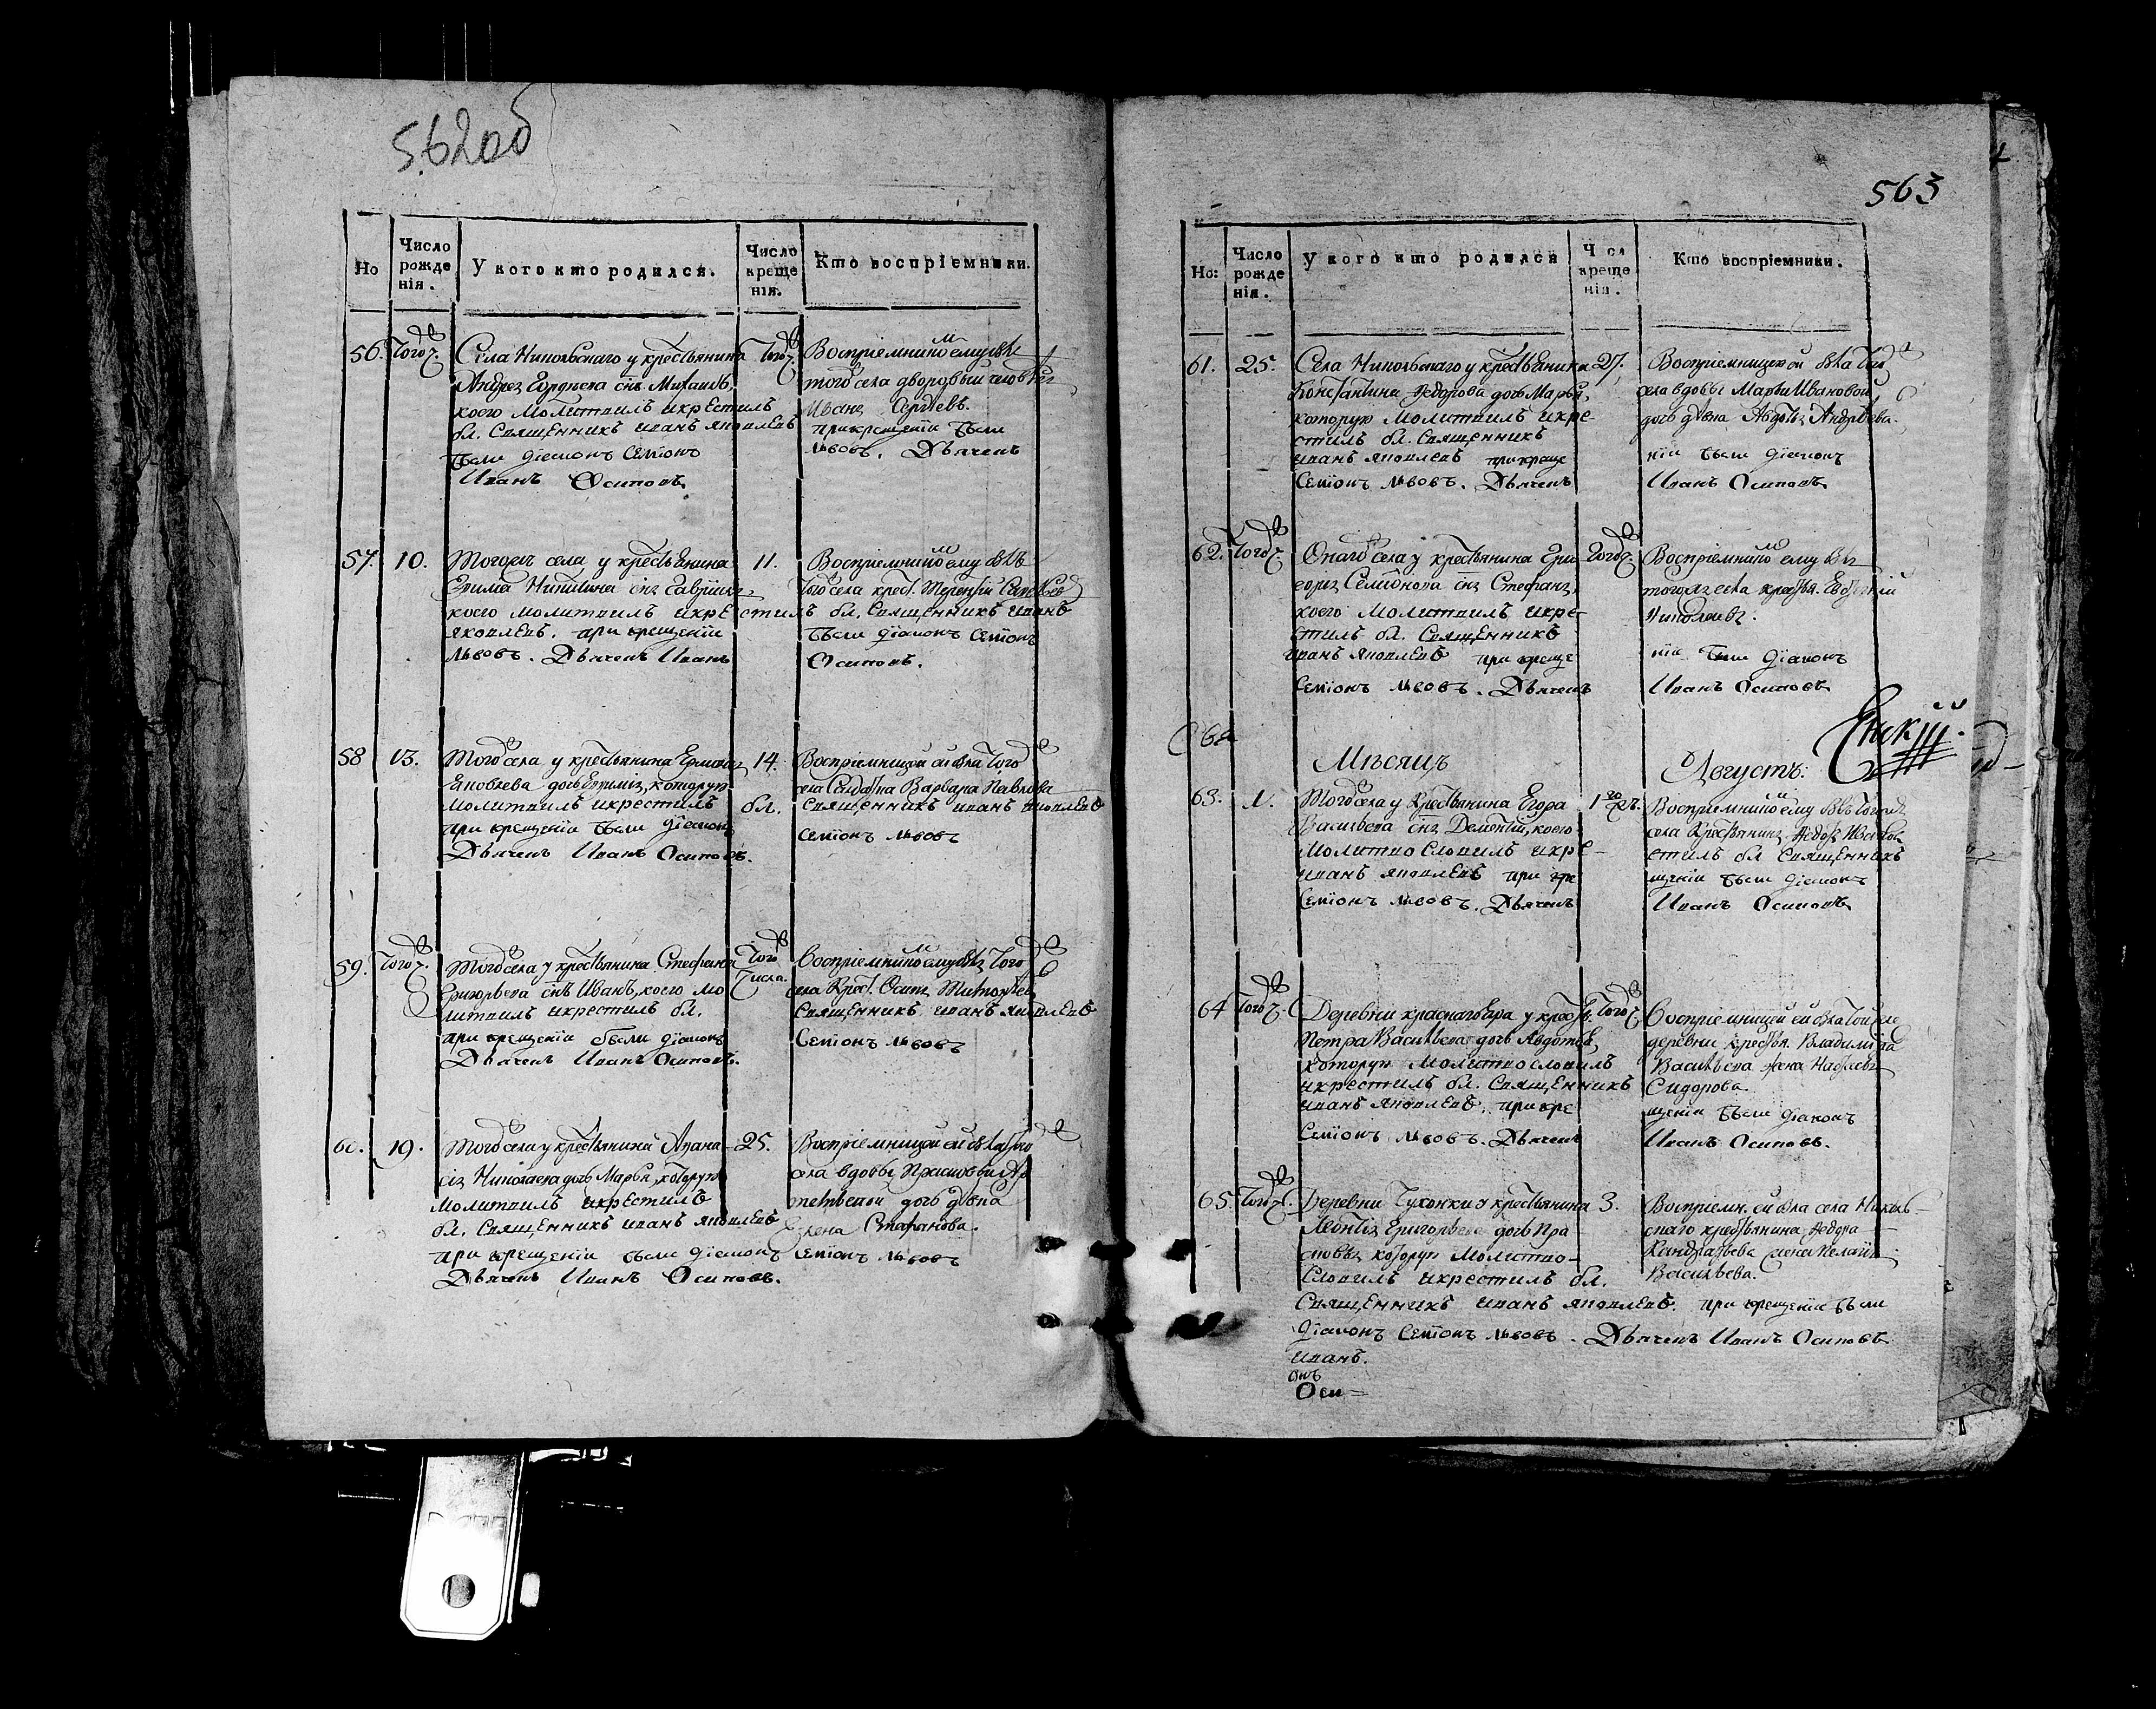 562об
Но
Число рожденія.
У кого кто родился.
Число крещенія.
Кто воспріемники.
56. Того ч.
Села Никольскаго у крестьянина
Андрея Гордѣева снъ Михаилъ,
коего Молитвилъ икрестилъ
бл. Священникъ иванъ яковлевъ
были діаконъ Семіонъ
Иванъ Осиповъ
Того ч.
Воспріемникомъ ему бѣ
того села дворовый человѣкъ
Иванъ Сергѣевъ.
при крещеніи были
львовъ. Дьячекъ
57. 10.
Тогожъ села у крестьянина
Никитина снъ Гавріилъ,
коего молитвилъ икрестилъ бл. Священникъ иванъ
яковлевъ. при крещеніи
львовъ. Дьячекъ Иванъ
11.
Воспріемникомъ ему бѣ
того села крест. Терентій
были діаконъ Семіонъ
Осиповъ.
58 13.
Того села у крестьянина Ермолая
Яковлева дочь Евфимія, которую
молитвилъ икрестилъ
при крещеніи были діаконъ
Дьячекъ Иванъ Осиповъ.
14.
Воспріемницей ей бѣла того
села Варвара Павлова
бл. Священникъ иванъ яковлевъ
Семіонъ львовъ
59. Того ч.
Того села у крестьянина Стефана
Григорьева снъ Иванъ, коего мо
литвилъ икрестилъ бл.
при крещеніи были діаконъ
Дьячекъ Иванъ Осиповъ.
Того числа
Воспріемникомъ ему бѣ того
села Крест. Осипъ
Священникъ иванъ яковлевъ
Семіонъ львовъ
60. 19.
Того села у крестьянина Афана
сія Николаева дочь Марья, которую
молитвилъ икрестилъ
бл. Священникъ иванъ яковлевъ
при крещеніи были діаконъ Семіонъ львовъ
Дьячекъ Иванъ Осиповъ.
25.
Воспріемницей ей бѣла того
села вдовы Прасковьи
дочь дѣвка
Елена Стефанова.
563
Но:
Число рожденія.
У кого кто родился
Числ крещенія.
Кто воспріемники.
61. 25.
Села Никольскаго у крестьянина
Константина Федорова дочь Марья,
которую молитвилъ икре
стилъ бл. Священникъ
иванъ яковлевъ при креще
Семіонъ львовъ. Дьячекъ
27.
Воспріемницей ей бѣла того
села вдовы Марьи Ивановой
дочь дѣвка Авдотья Андрѣева.
ніи были діаконъ
Иванъ Осиповъ
62. Того ч.
Онаго села у крестьянина Гри
горья Семіонова снъ Стефанъ,
коего Молитвилъ икре
стилъ бл. Священникъ
иванъ яковлевъ при креще
Семіонъ львовъ. Дьячекъ
Того ч.
Воспріемникомъ ему бѣ
тогожъ села крестья. Евдокій
Николаевъ.
ніи были діаконъ
Иванъ Осиповъ
Мѣсяцъ Августъ:
63. 1.
Того села у Крестьянина Егора
Васильева снъ Дементій, коего
молитвословилъ икре
иванъ яковлевъ при кре
Семіонъ львовъ. Дьячекъ
1го
Воспріемникомъ ему бѣ тогожъ
села Крестьянинъ Федоръ
стилъ бл Священникъ
щеніи были діаконъ
Иванъ Осиповъ
64 Того ч.
Деревни краснагояра у крестья.
Петра Васильева дочь Авдотья,
которую молитвословилъ
икрестилъ бл. Священникъ
иванъ яковлевъ, при кре
Семіонъ львовъ. Дьячекъ
Того ч.
Воспріемницей ей бѣла тойже
деревни крестья. Владимира
Васильева жена Настасья
Сидорова.
щеніи были діаконъ
Иванъ Осиповъ.
65. Того ч.
Деревни Чухонки у крестьянина
Леонтія Григорьева дочь Пра
сковья которую Молитво
словилъ икрестилъ бл.
Священникъ иванъ яковлевъ. при крещеніи были
діаконъ Семіонъ львовъ. Дьячекъ Иванъ Осиповъ
иванъ.
Оси
3.
Воспріемн. ей бѣла села Николь
скаго крестьянина Федора
Кандратьева жена Пелагія
Васильева.